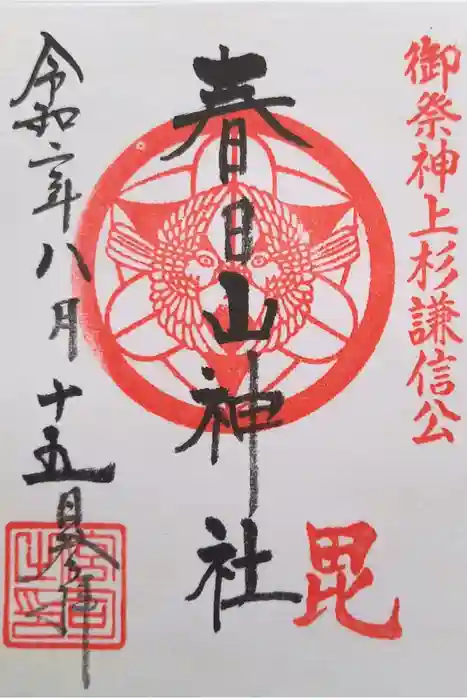 御祭神上杉謙信公
毘
春日山神社
令和六年八月十五日参拝